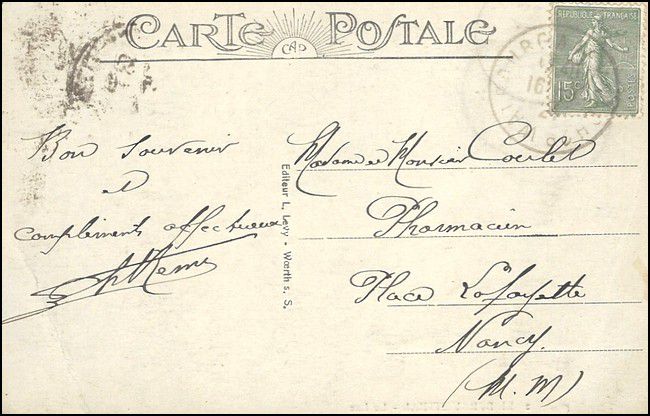 CARTE POSTALE
CAP
REPUBLIQUE FRANÇAISE
15c
Bon souvenir
et
compliments affectueux
Editeur L. Levy - Wœrth s. S.
Madame et Monsieur
Pharmacien
Place Lafayette
Nancy
(M. M)